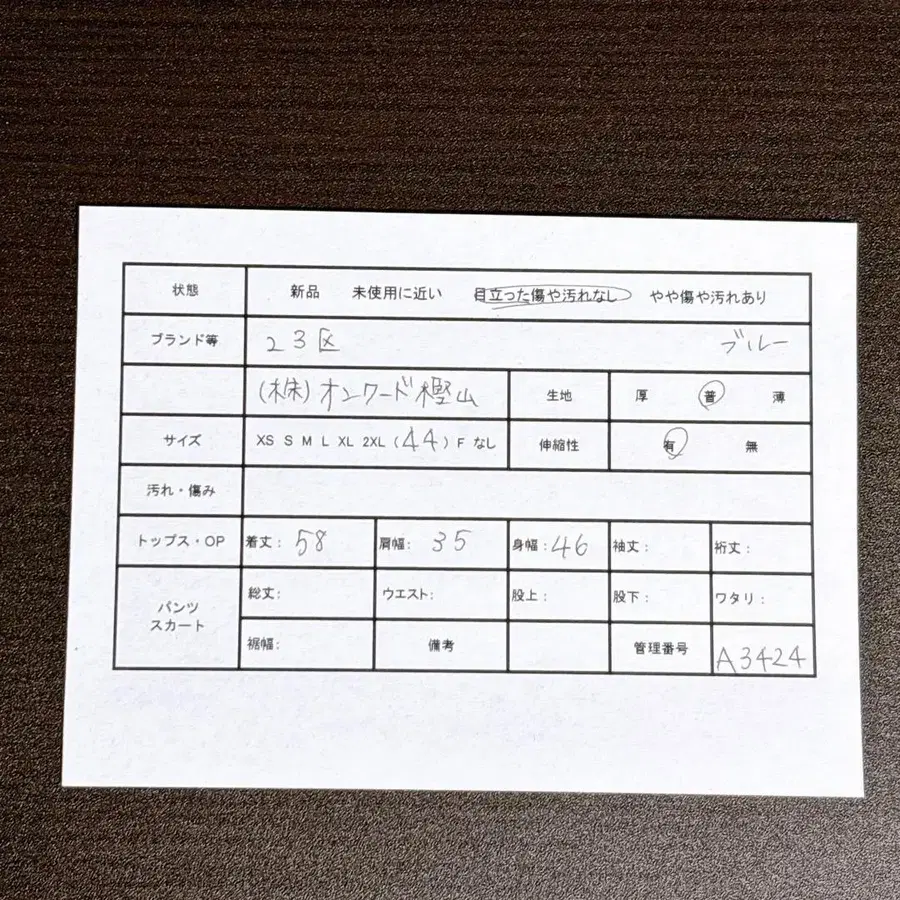 状態 新品 未使用に近い 目立った傷や汚れなし やや傷や汚れあり
ブランド等 23区 ブルー
(株)オンワード樫山 生地 厚 普 薄
サイズ XS S M L XL 2XL (44) F なし 伸縮性 有 無
汚れ・傷み
トップス・OP 着丈: 58 肩幅: 35 身幅: 46 袖丈: 裄丈:
パンツ スカート 総丈: ウエスト: 股上: 股下: ワタリ:
裾幅: 備考 管理番号 A3424